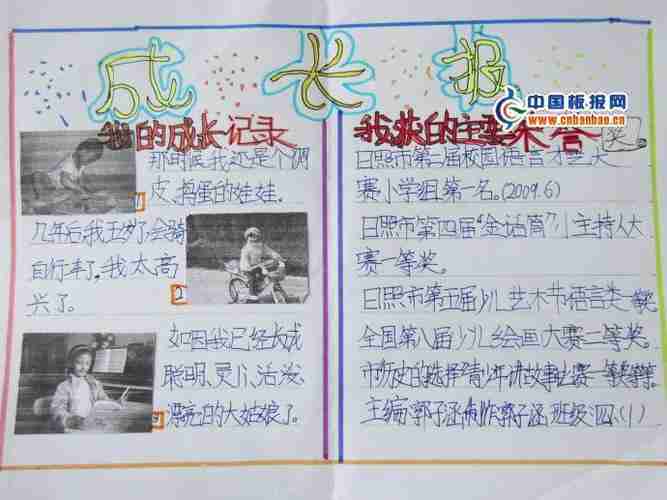 成长报
中国板报网
www.cnbanbao.cn
我的成长记录
我获的主要荣誉
奖
那时候我还是个调
皮捣蛋的娃娃。
1
几年后,我五岁了,会骑
自行车了,我太高
兴了。
2
如因我已经长成
聪明、灵儿、活泼、
漂亮的大姑娘了。
3
日照市第二届校园语言才艺大
赛小学组第一名。(2009.6)
日照市第四届“金话筒”小主持人大
赛一等奖。
日照市第五届少儿艺术节语言类一等奖
全国第八届少儿绘画大赛二等奖。
的选择青少年讲故事比赛一等奖等等。
主编:郭子涵 制作郭子涵 班级:四(1)